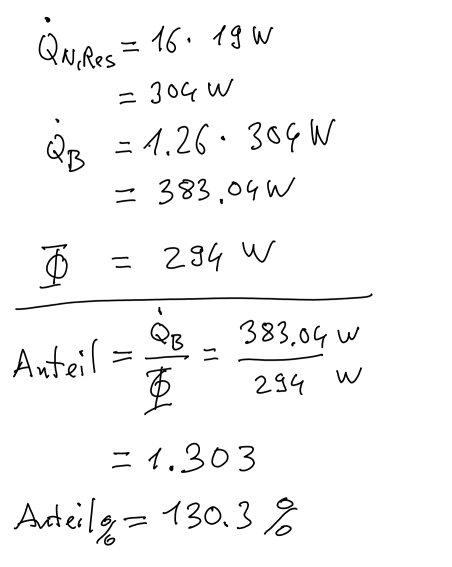 Q̇N,Res = 16 · 19 W
= 304 W
Q̇B = 1.26 · 304 W
= 383.04 W
Φ = 294 W
Anteil = Q̇B / Φ = 383.04 W / 294 W
= 1.303
Anteil% = 130.3 %